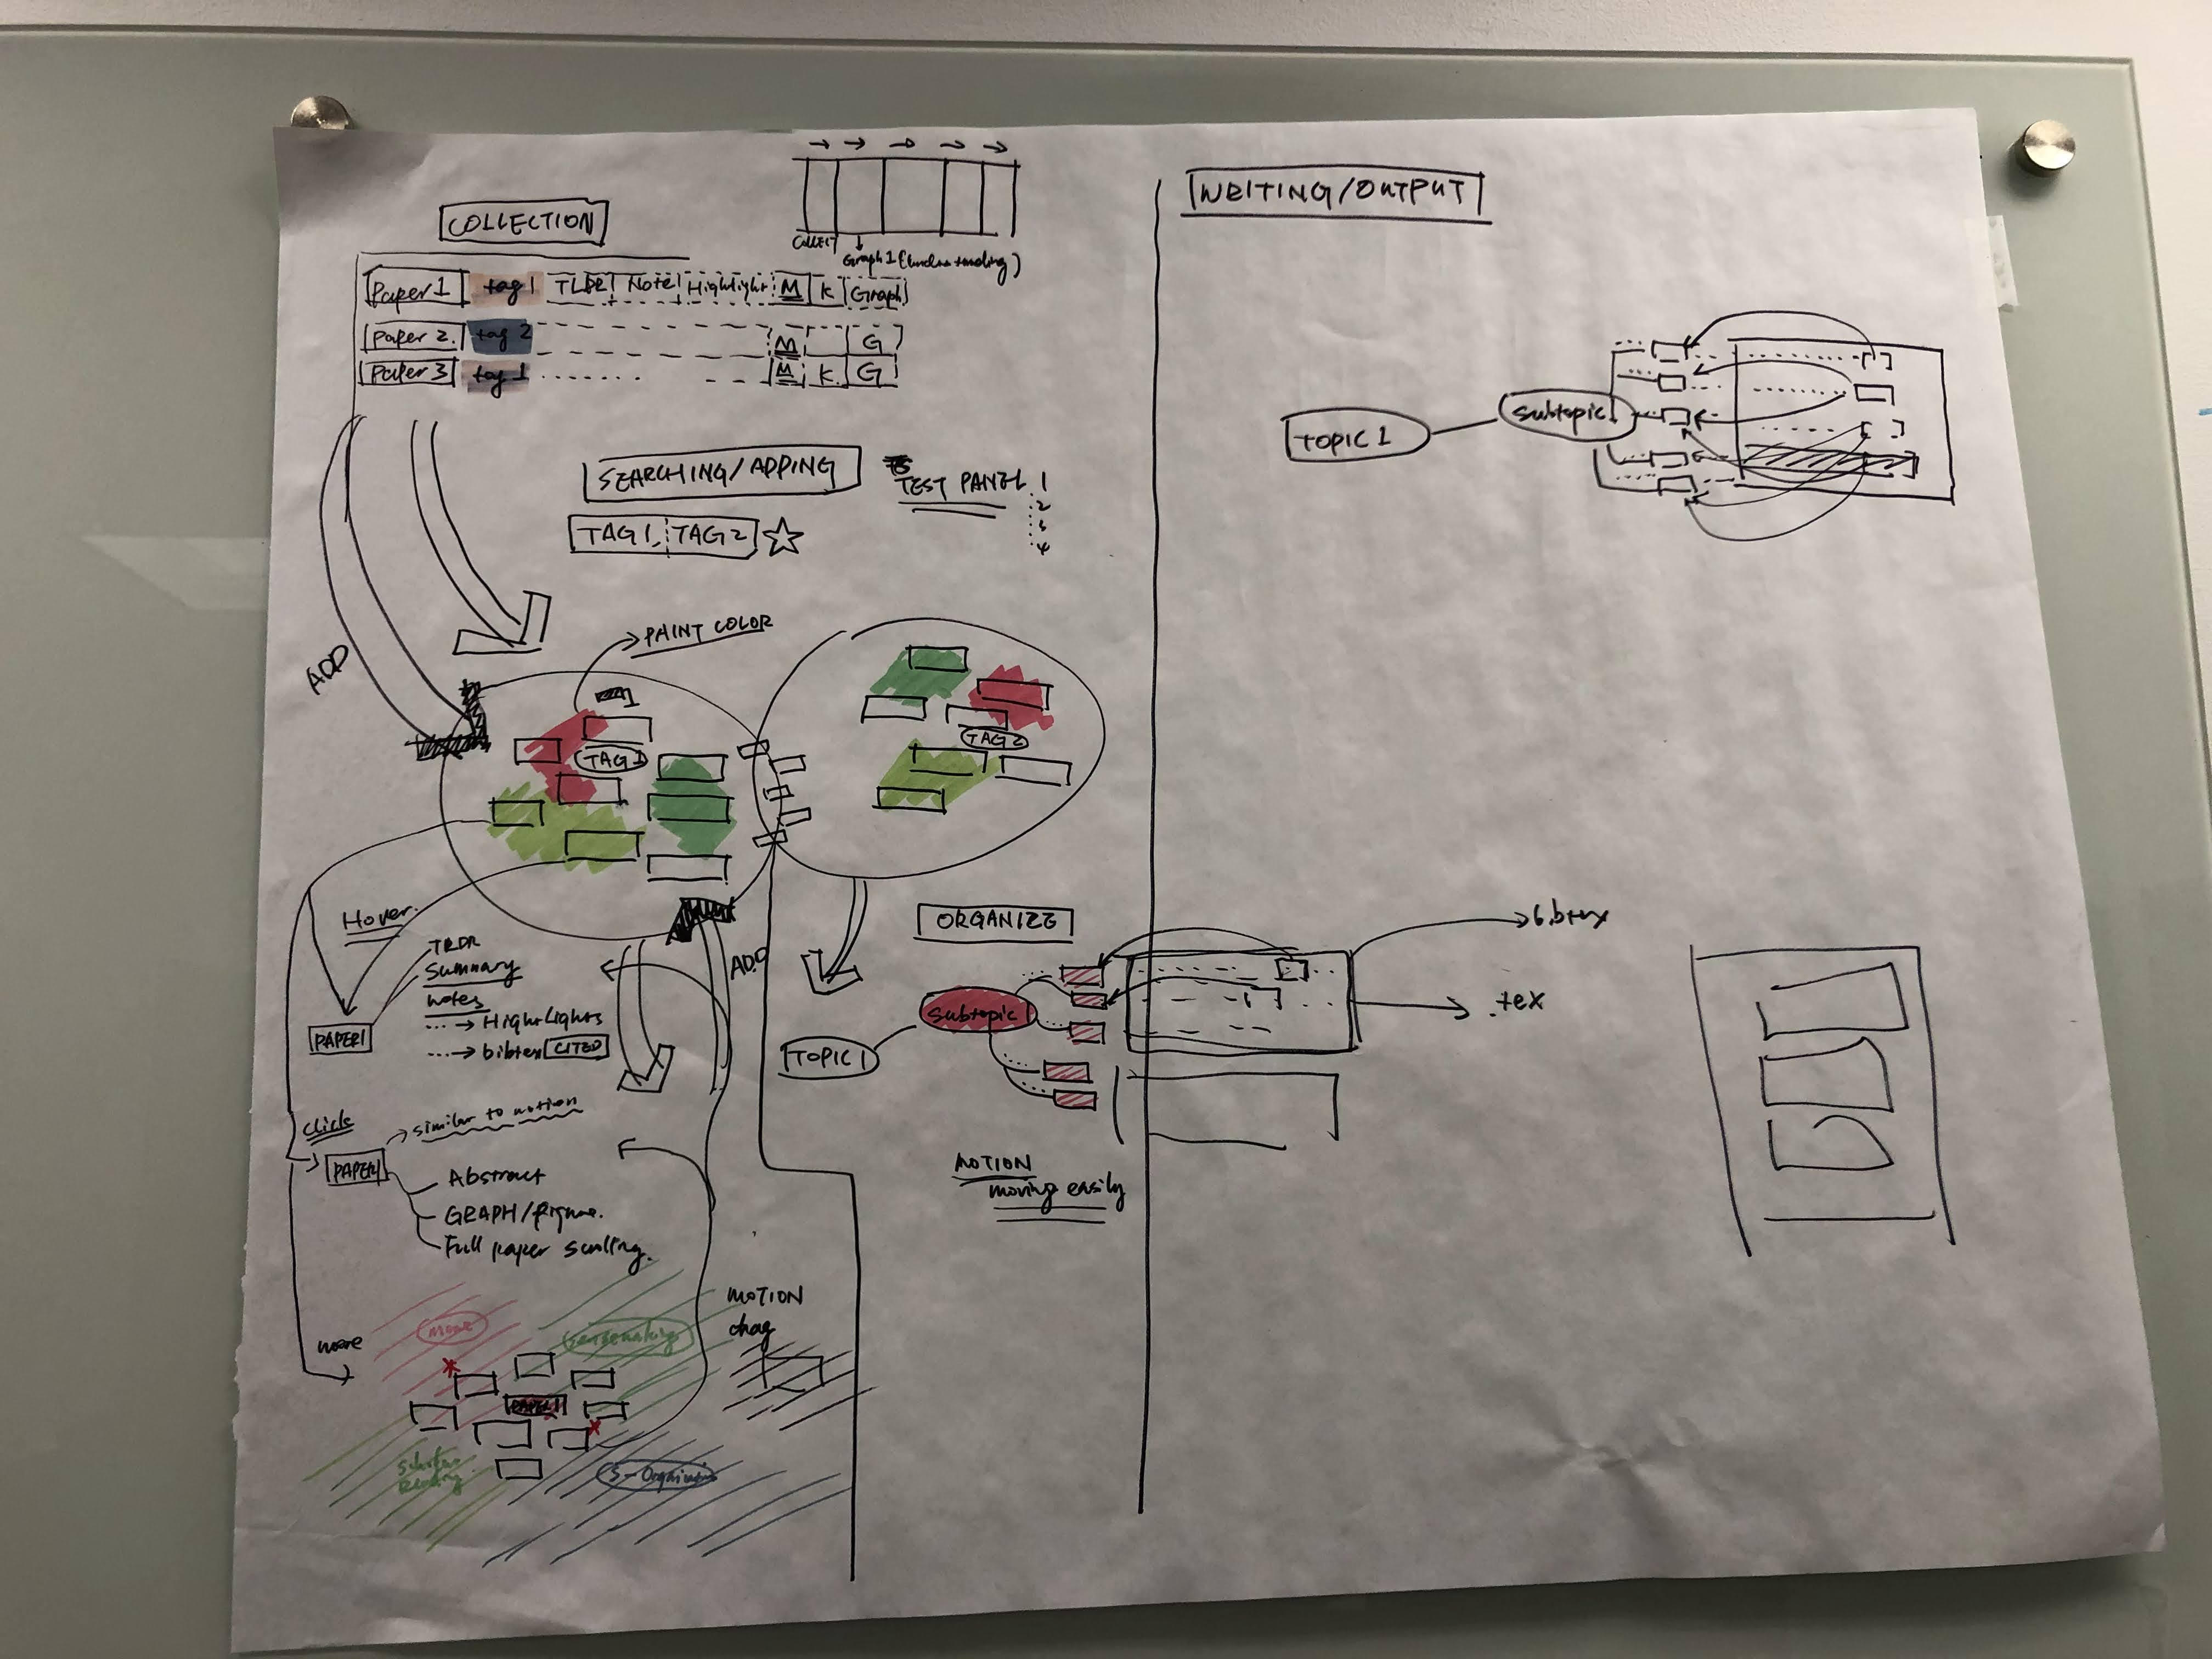 COLLECTION
COLLECT
Graph 1 (understanding)
Paper 1 tag 1 TLDR Note Highlight M K Graph
Paper 2. tag 2 M G
Paper 3 tag 1 M K G
SEARCHING/ADDING
TEST PANEL 1
2
3
4
TAG 1, TAG 2
ADD
PAINT COLOR
1
TAG 1
TAG 2
Hover.
TLDR
Summary
notes
HighLights
bibtex CITED
PAPER1
ADD
click
similar to notion
PAPER1
Abstract
GRAPH/figure.
Full paper scrolling.
more
Sensemaking
PAPER1
MOTION
drag
ORGANIZE
Subtopic
TOPIC 1
MOTION
moving easily
WRITING/OUTPUT
TOPIC 1
Subtopic
bibtex
.tex